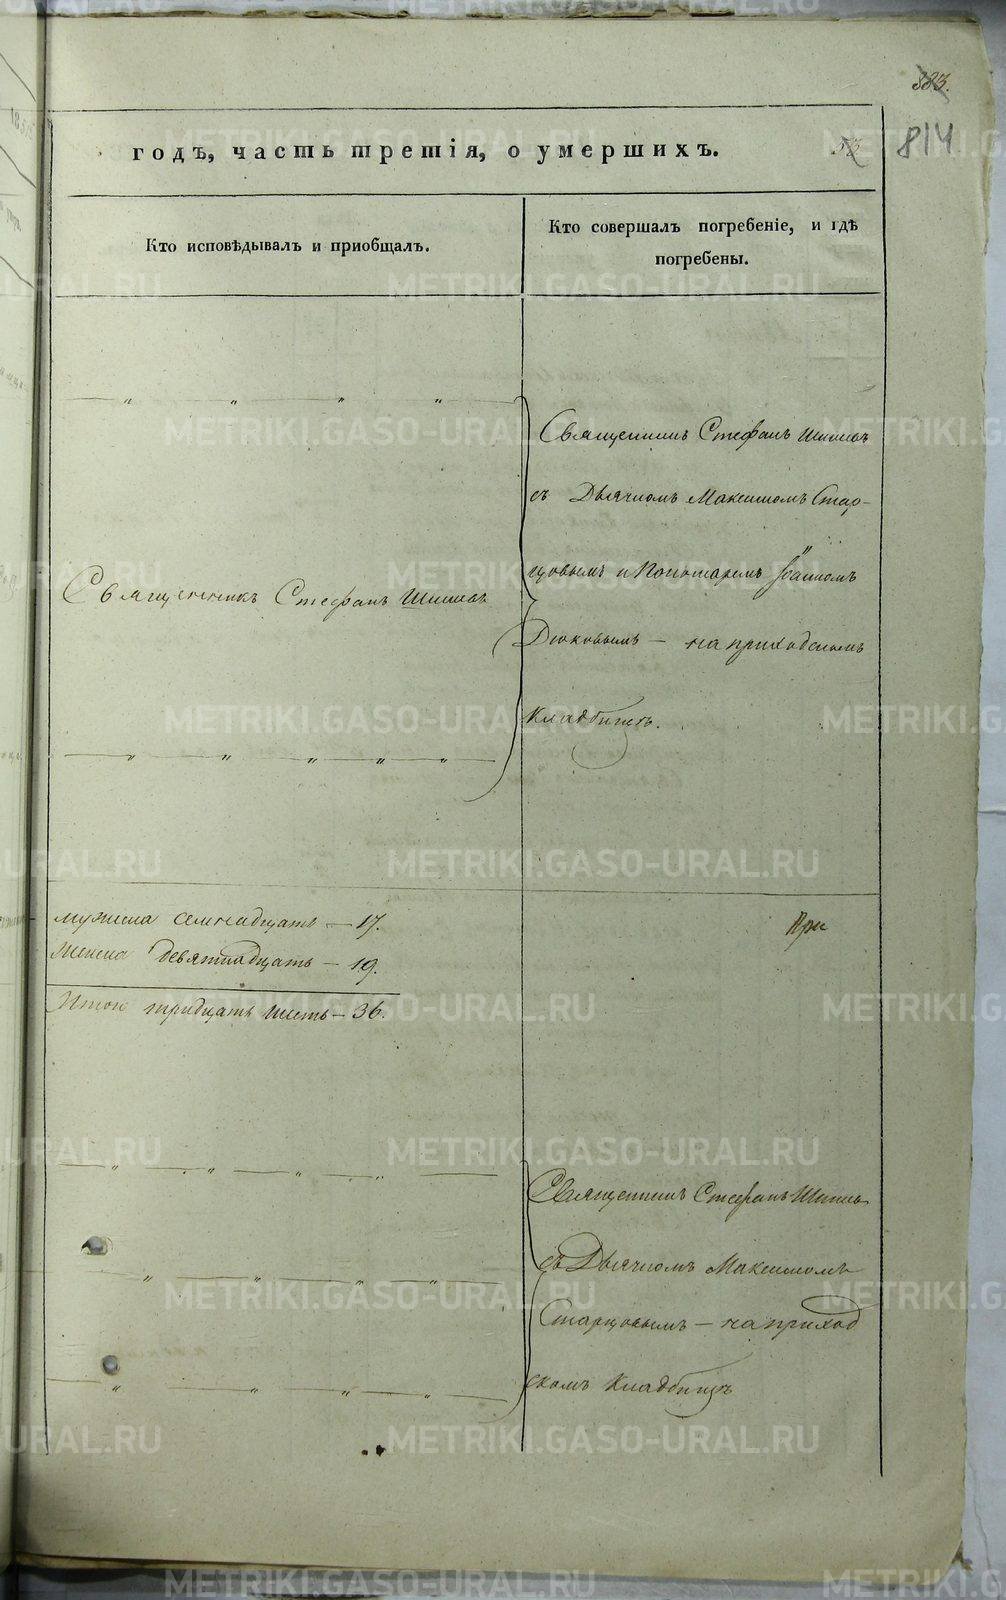 883.
814
53
годъ, часть третія, о умершихъ.
Кто исповѣдывалъ и приобщалъ.
Кто совершалъ погребеніе, и гдѣ
погребены.
Священникъ Стефанъ
Священникъ Стефанъ
съ Дьячкомъ Максимомъ Стар-
цовымъ и Пономаремъ Іоанномъ
Дюковымъ — на приходскомъ
Кладбищѣ.
мужеска семнадцать — 17.
Женска девятнадцать — 19.
Итого тридцать шесть — 36.
При
Священникъ Стефанъ
съ Дьячкомъ Максимомъ
Старцовымъ — на приход
скомъ Кладбищѣ
METRIKI.GASO-URAL.RU